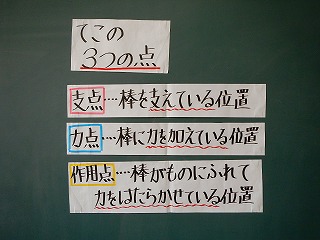 てこの
3つの点
支点‥‥棒を支えている位置
力点‥‥棒に力を加えている位置
作用点‥‥棒がものにふれて
力をはたらかせている位置